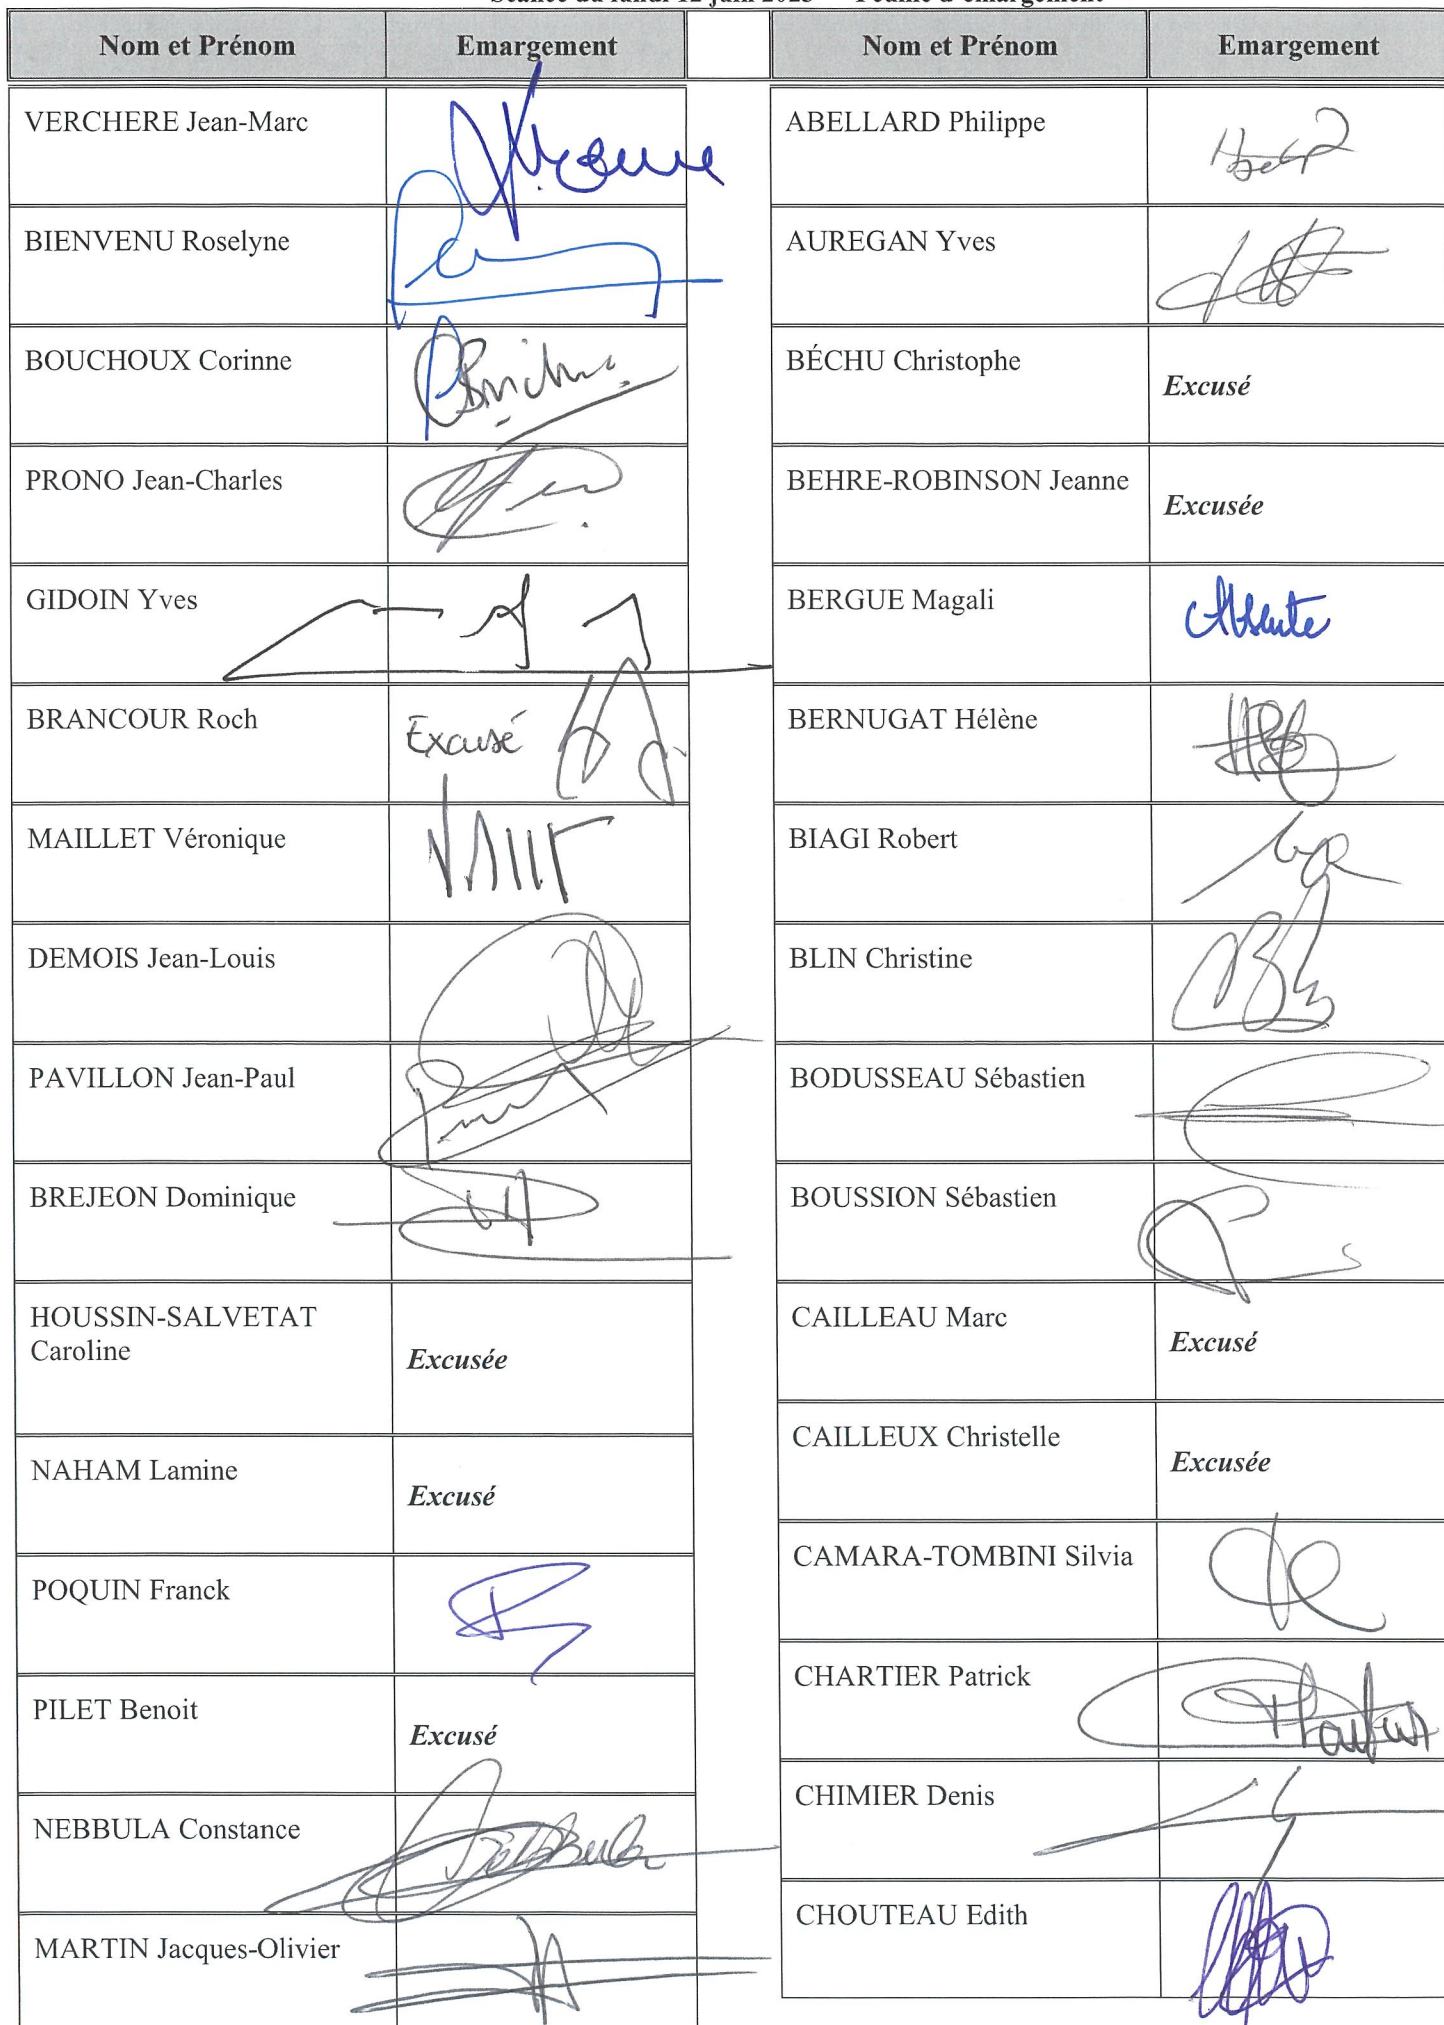 Séance du lundi 12 juin 2023 Feuille d'émargement
Nom et Prénom Emargement
VERCHERE Jean-Marc
BIENVENU Roselyne
BOUCHOUX Corinne
PRONO Jean-Charles
GIDOIN Yves
BRANCOUR Roch Excusé
MAILLET Véronique
DEMOIS Jean-Louis
PAVILLON Jean-Paul
BREJEON Dominique
HOUSSIN-SALVETAT
Caroline
Excusée
NAHAM Lamine
Excusé
POQUIN Franck
PILET Benoit
Excusé
NEBBULA Constance
MARTIN Jacques-Olivier
Nom et Prénom Emargement
ABELLARD Philippe
AUREGAN Yves
BÉCHU Christophe
Excusé
BEHRE-ROBINSON Jeanne
Excusée
BERGUE Magali Absente
BERNUGAT Hélène
BIAGI Robert
BLIN Christine
BODUSSEAU Sébastien
BOUSSION Sébastien
CAILLEAU Marc
Excusé
CAILLEUX Christelle
Excusée
CAMARA-TOMBINI Silvia
CHARTIER Patrick
CHIMIER Denis
CHOUTEAU Edith